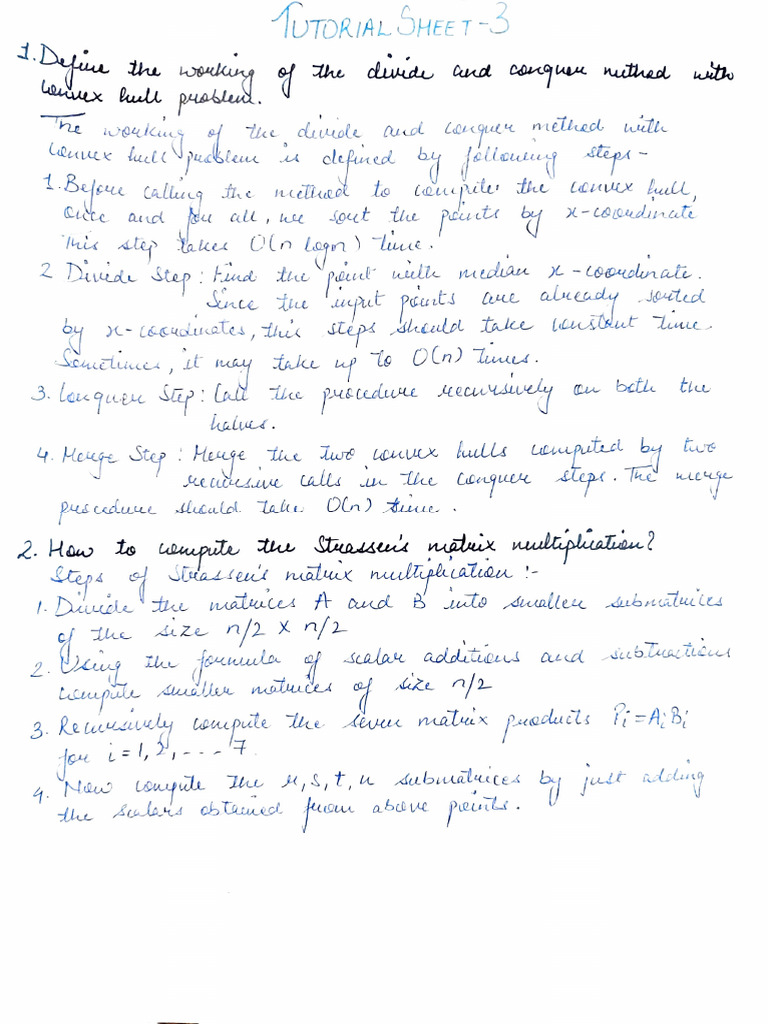 TUTORIAL SHEET-3
1. Define the working of the divide and conquer method with
convex hull problem.
The working of the divide and conquer method with
convex hull problem is defined by following steps-
1. Before calling the method to compute the convex hull,
once and for all, we sort the points by x-coordinate
This step takes O(n logn) time.
2 Divide Step: Find the point with median x-coordinate.
Since the input points are already sorted
by x-coordinates, this steps should take constant time.
Sometimes, it may take up to O(n) times.
3. Conquer Step: Call the procedure recursively on both the
halves.
4. Merge Step: Merge the two convex hulls computed by two
recursive calls in the conquer steps. The merge
procedure should take O(n) time.
2. How to compute the Strassen's matrix multiplication?
Steps of Strassen's matrix multiplication :-
1. Divide the matrices A and B into smaller submatrices
of the size n/2 x n/2
2. Using the formula of scalar additions and subtractions
compute smaller matrices of size n/2
3. Recursively compute the seven matrix products Pi=AiBi
for i=1,2,....7.
4. Now compute the r,s,t,u submatrices by just adding
the scalars obtained from above points.